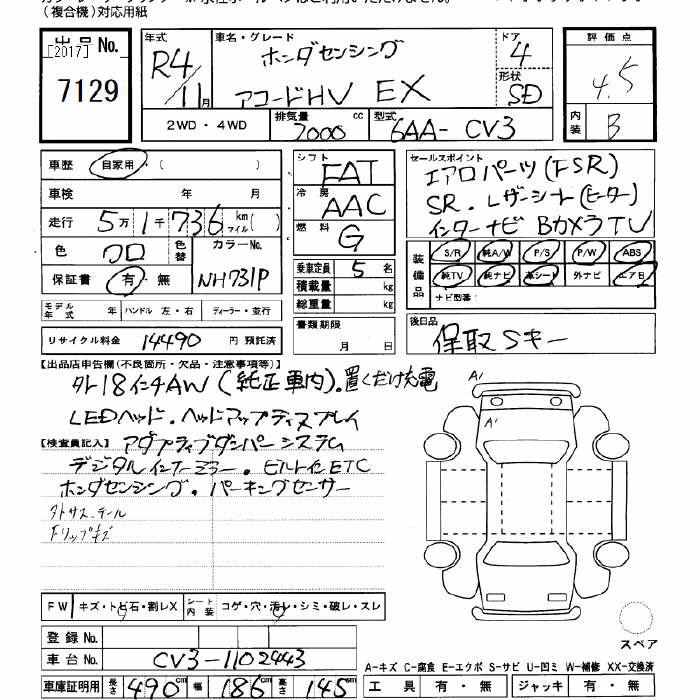 （複合機）対応用紙
出品No.
[2017]
7129
年式
R4/11月
車名・グレード
ホンダセンシング
アコードHV EX
ドア
4
形状
SD
評価点
4.5
内装
B
2WD・4WD
排気量
2000cc
型式
6AA-CV3
車歴 自家用・( )
車検 年 月
走行 5万1千736 km マイル( )
色 クロ
色替
カラーNo.
NH731P
保証書 有・無
モデル年式 年 ハンドル 左・右 ディーラー・並行
リサイクル料金 14490 円 預託済
シフト
FAT
冷房
AAC
燃料
G
乗車定員 5名
積載量 kg
総重量 kg
書類期限
月 日
セールスポイント
エアロパーツ(FSR)
SR.レザーシート(ヒーター)
インターナビ BカメラTV
装備品
S/R 純A/W P/S P/W ABS
純TV 純ナビ 革シート 外ナビ エアB
ナビ型番:
後日品
保取 Sキー
【出品店申告欄(不良箇所・欠品・注意事項等)】
外18インチAW(純正車内).置くだけ充電
LEDヘッド.ヘッドアップディスプレイ
【検査員記入】アダプティブダンパーシステム
デジタルインナーミラー.ビルトインETC
ホンダセンシング.パーキングセンサー
Fリップキズ
A1
A1
FW キズ・トビ石・割レX
シート内装 コゲ・穴・汚レ・シミ・破レ・スレ
登録No.
車台No. CV3-1102443
車庫証明用 長さ490cm 幅186cm 高さ145cm
スペア
A-キズ C-腐食 E-エクボ S-サビ U-凹ミ W-補修 XX-交換済
工具 有・無 ジャッキ 有・無